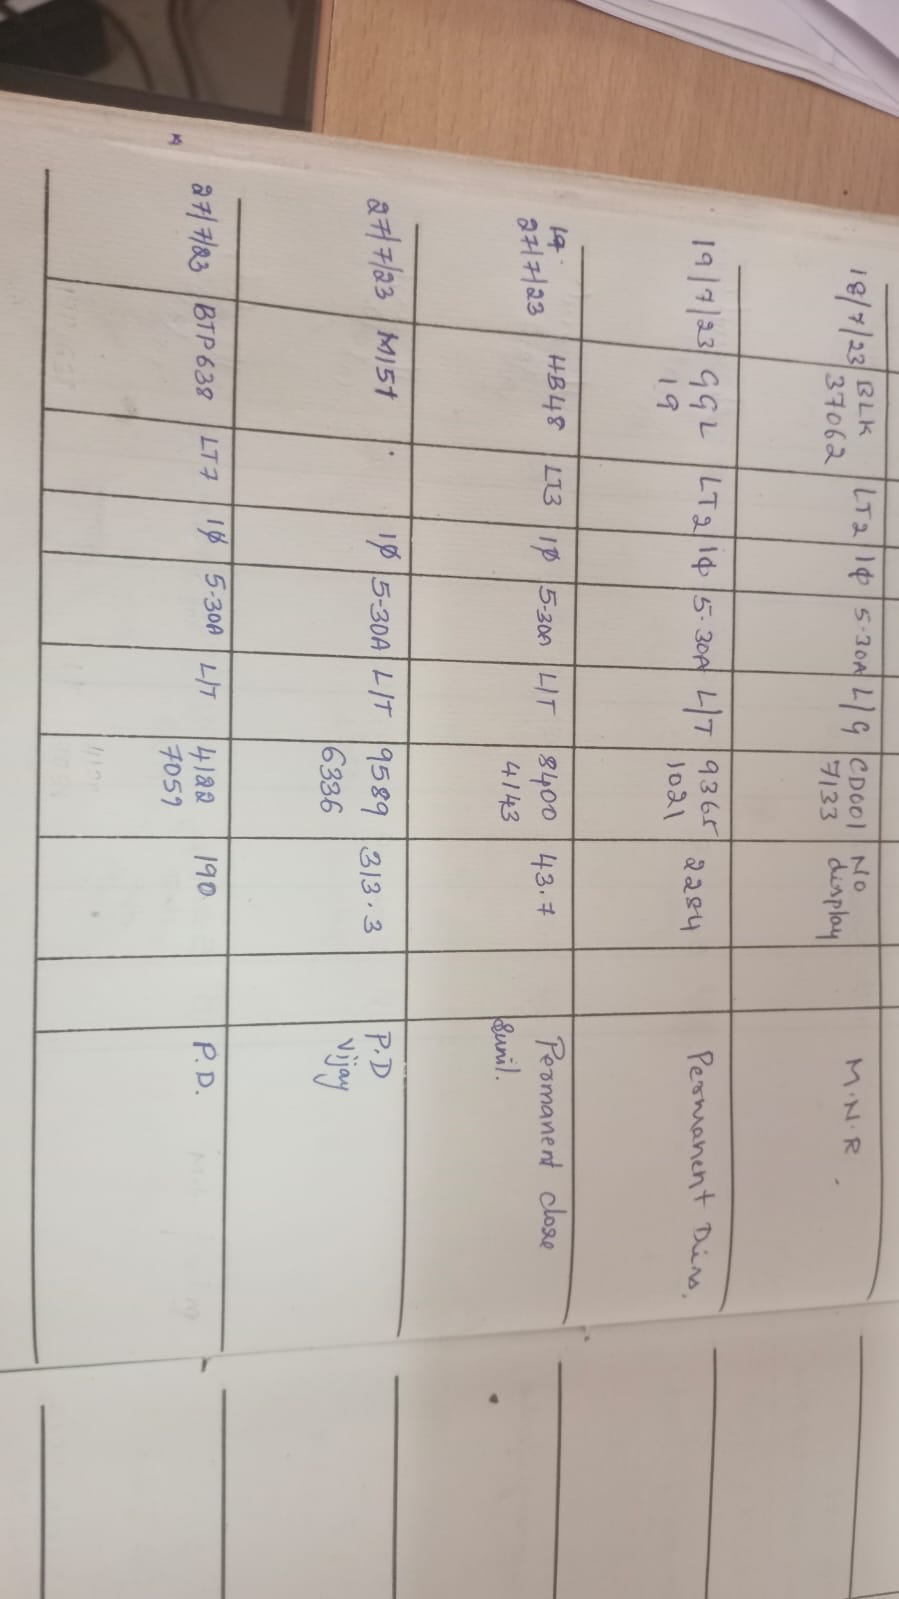 18/7/23 BLK LT2 1φ 5-30A L/G CD001 No M.N.R.
37062 7133 display
19/7/23 GGL LT2 1φ 5-30A L/T 9365 2284 Permanent Diss.
19 1021
19.
27/7/23 HB48 LT3 1φ 5-30A L/T 8400 43.7 Permanent close
4143 Sunil.
27/7/23 M15t 1φ 5-30A L/T 9589 313.3 P.D
6336 Vijay
27/7/23 BTP638 LT7 1φ 5-30A L/T 4122 190 P.D.
7059